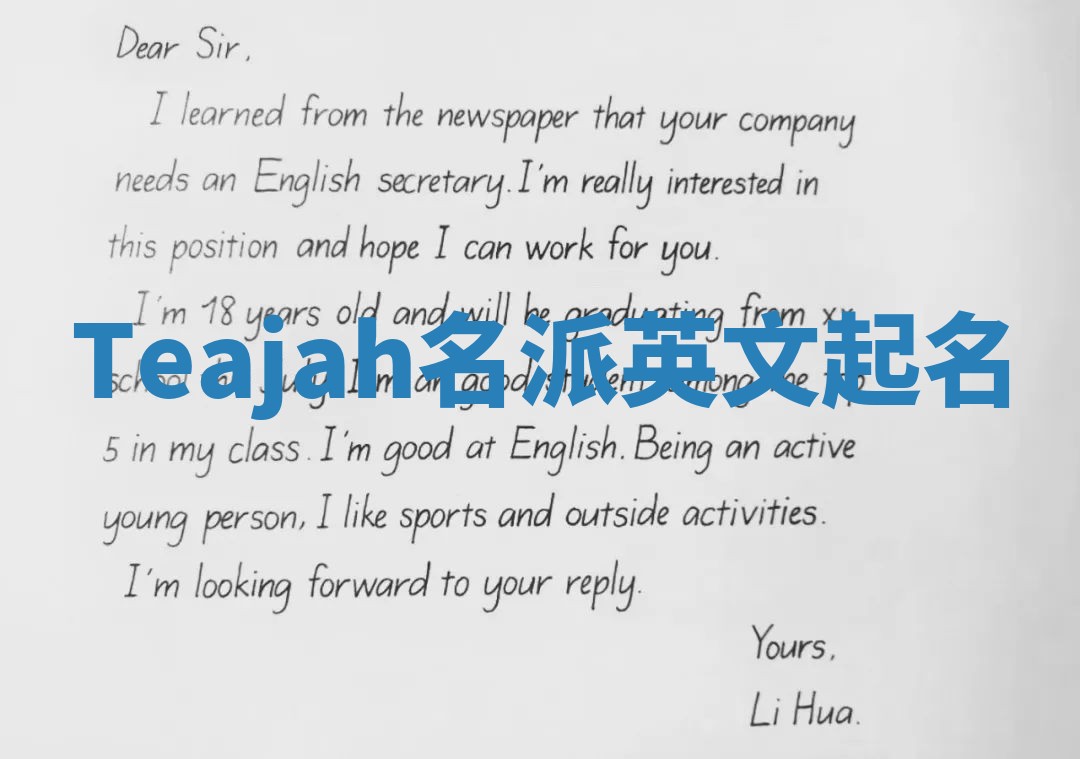 Dear Sir,
I learned from the newspaper that your company
needs an English secretary. I'm really interested in
this position and hope I can work for you.
I'm 18 years old and will be graduating from xx
Teajah名派英文起名
school in July. I'm an good student among the top
5 in my class. I'm good at English. Being an active
young person, I like sports and outside activities.
I'm looking forward to your reply.
Yours,
Li Hua.